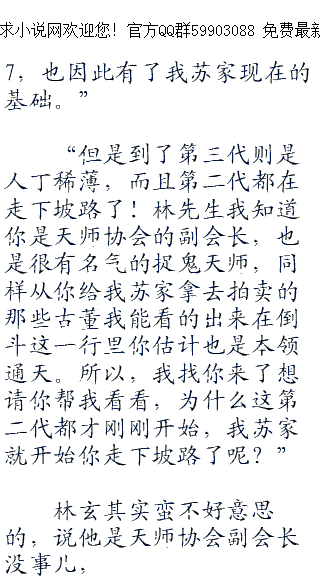 求小说网欢迎您！官方QQ群59903088 免费最新
7，也因此有了我苏家现在的
基础。”
“但是到了第三代则是
人丁稀薄，而且第二代都在
走下坡路了！林先生我知道
你是天师协会的副会长，也
是很有名气的捉鬼天师，同
样从你给我苏家拿去拍卖的
那些古董我能看的出来在倒
斗这一行里你估计也是本领
通天。所以，我找你来了想
请你帮我看看，为什么这第
二代都才刚刚开始，我苏家
就开始你走下坡路了呢？”
林玄其实蛮不好意思
的，说他是天师协会副会长
没事儿，